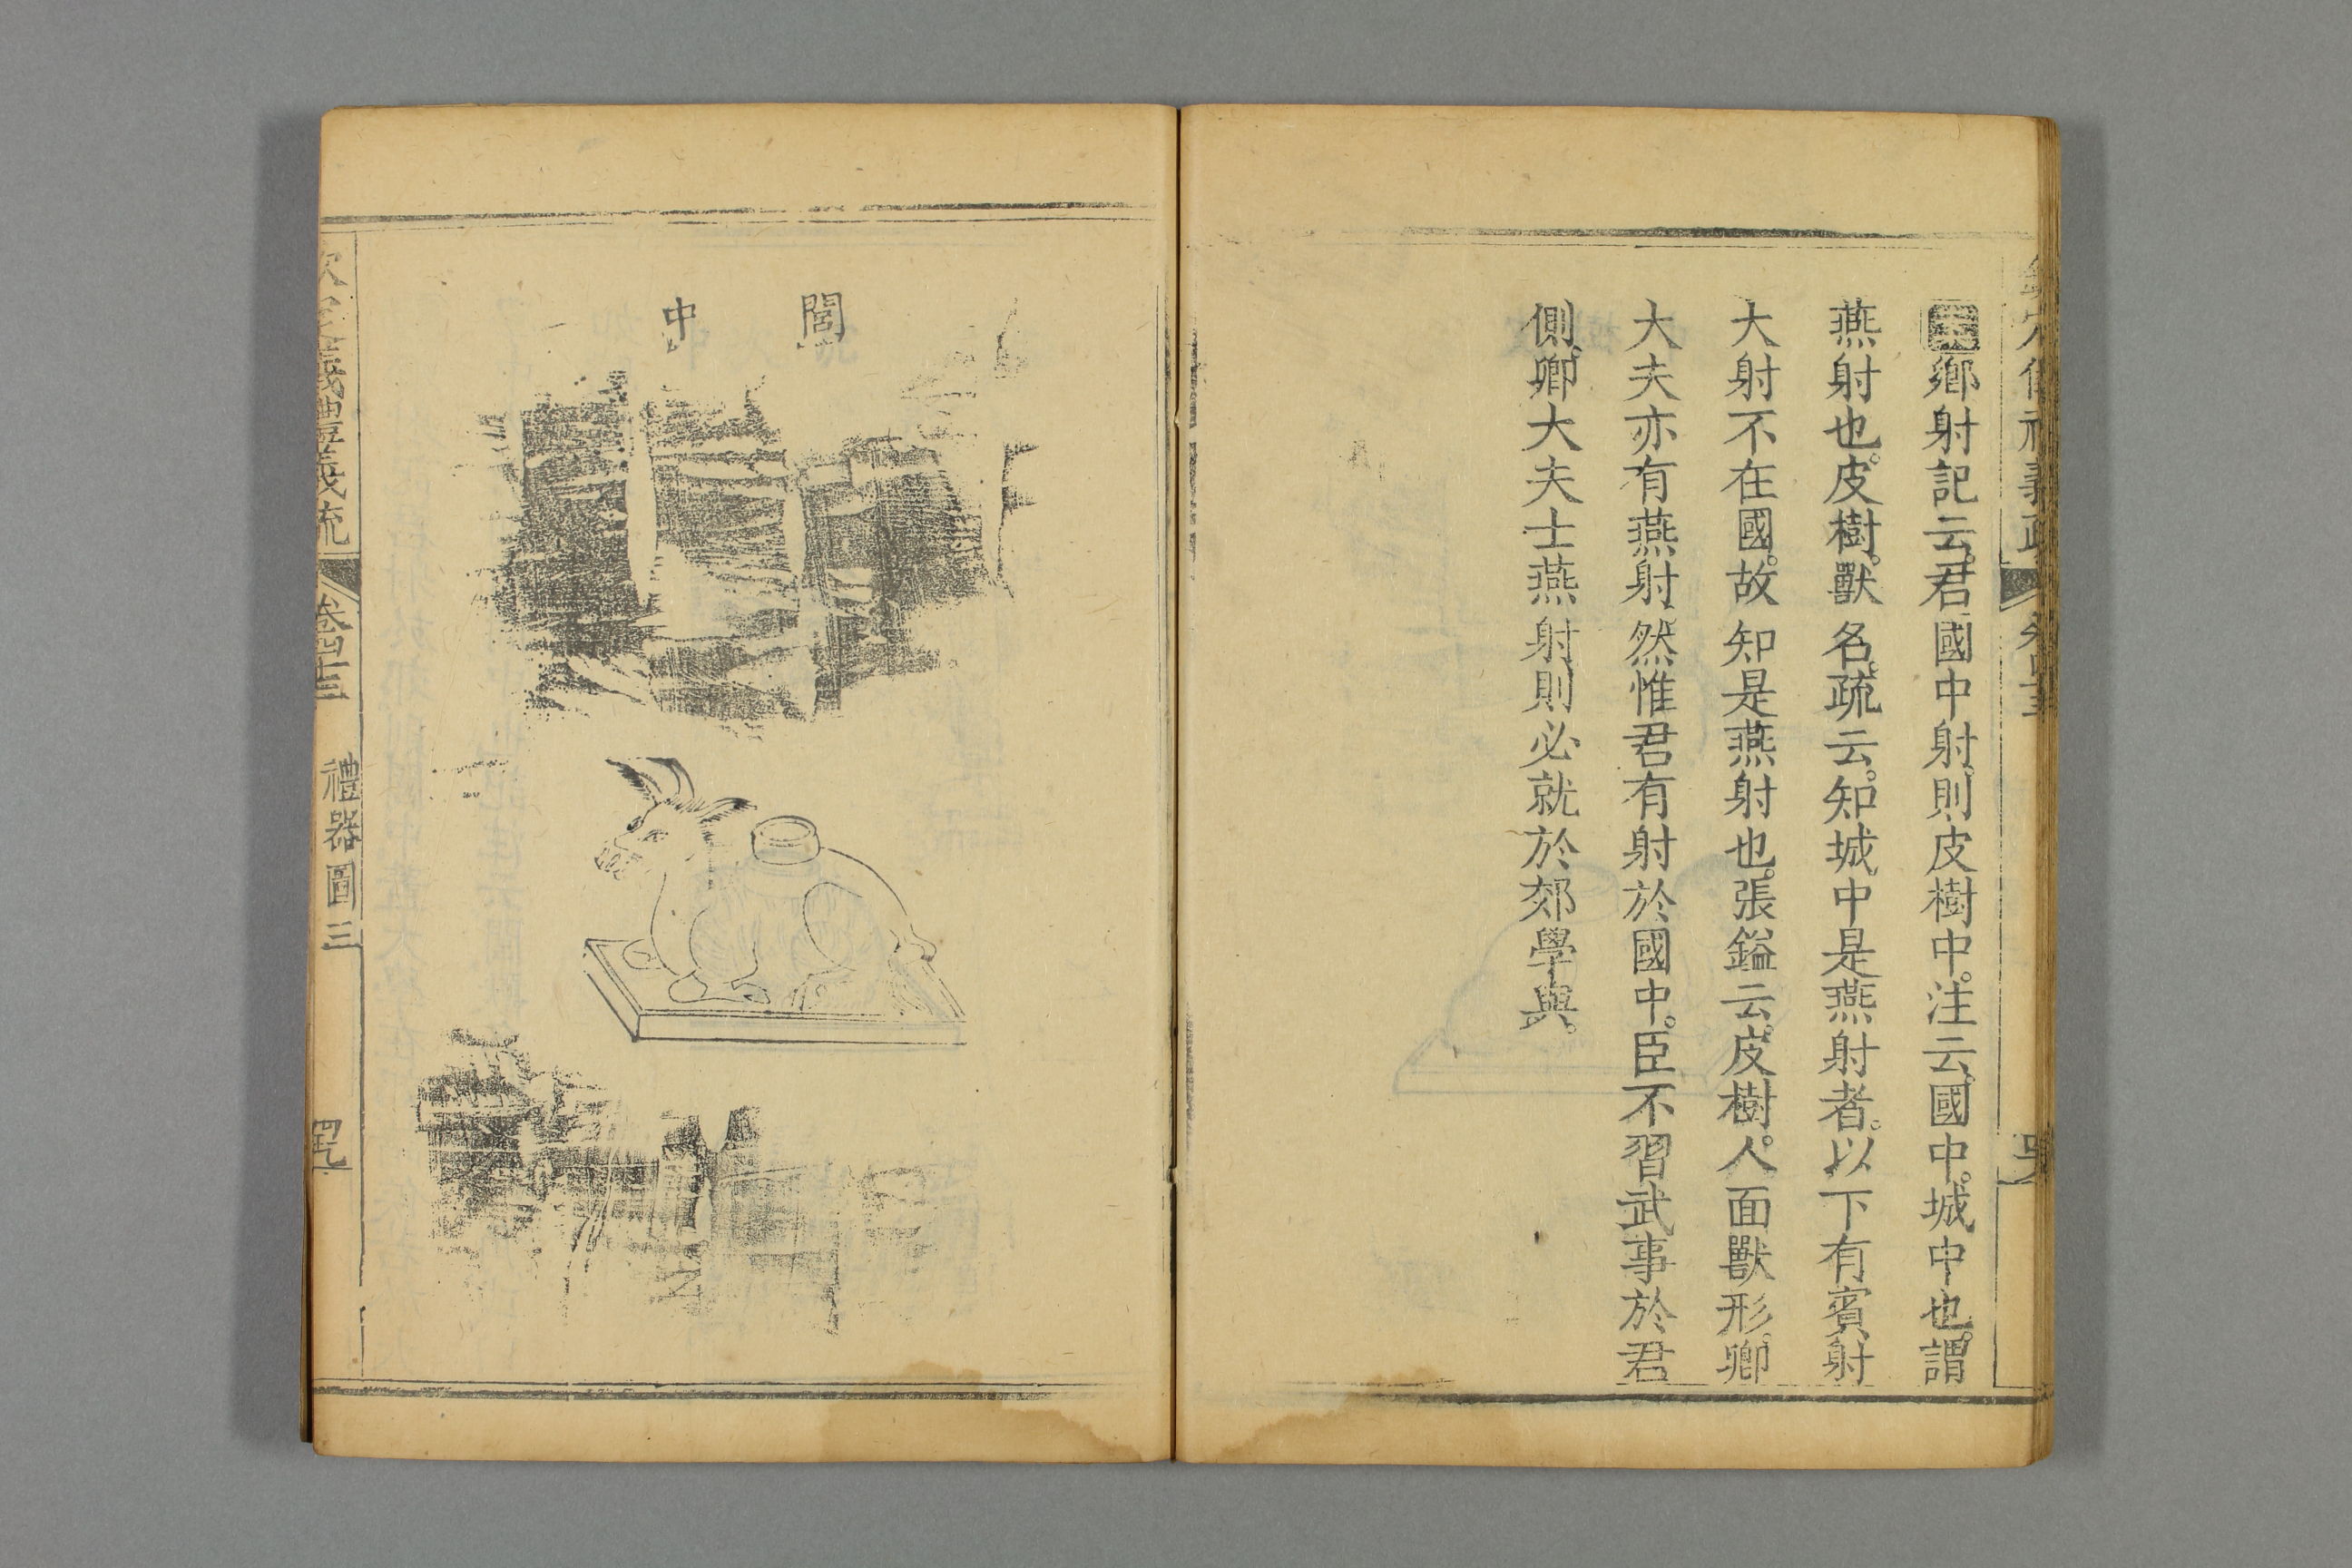 鄉射記云。君國中射。則皮樹中。注云。國中。城中也。謂
燕射也。皮樹。獸名。疏云。知城中是燕射者。以下有賓射
大射不在國。故知是燕射也。張鎰云。皮樹。人面獸形。卿
大夫亦有燕射。然惟君有射於國中。臣不習武事於君
側。卿大夫士燕射則必就於郊學與。
閭
中
欽定儀禮義疏
卷四十三
禮器圖三